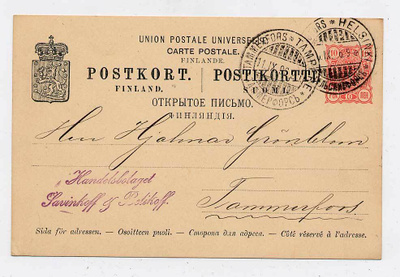 UNION POSTALE UNIVERSELLE
CARTE POSTALE.
FINLANDE.
POSTKORT. POSTIKORTTI.
FINLAND. SUOMI.
ОТКРЫТОЕ ПИСЬМО.
ФИНЛЯНДІЯ.
TAMMERFORS * TAMPERE
HELSINKI
10
Herr Hjalmar Grönblom
Handelsbolaget
Savinhoff &
Tammerfors
Sida för adressen. — Osoitteen puoli. — Сторона для адреса. — Côté réservé à l'adresse.